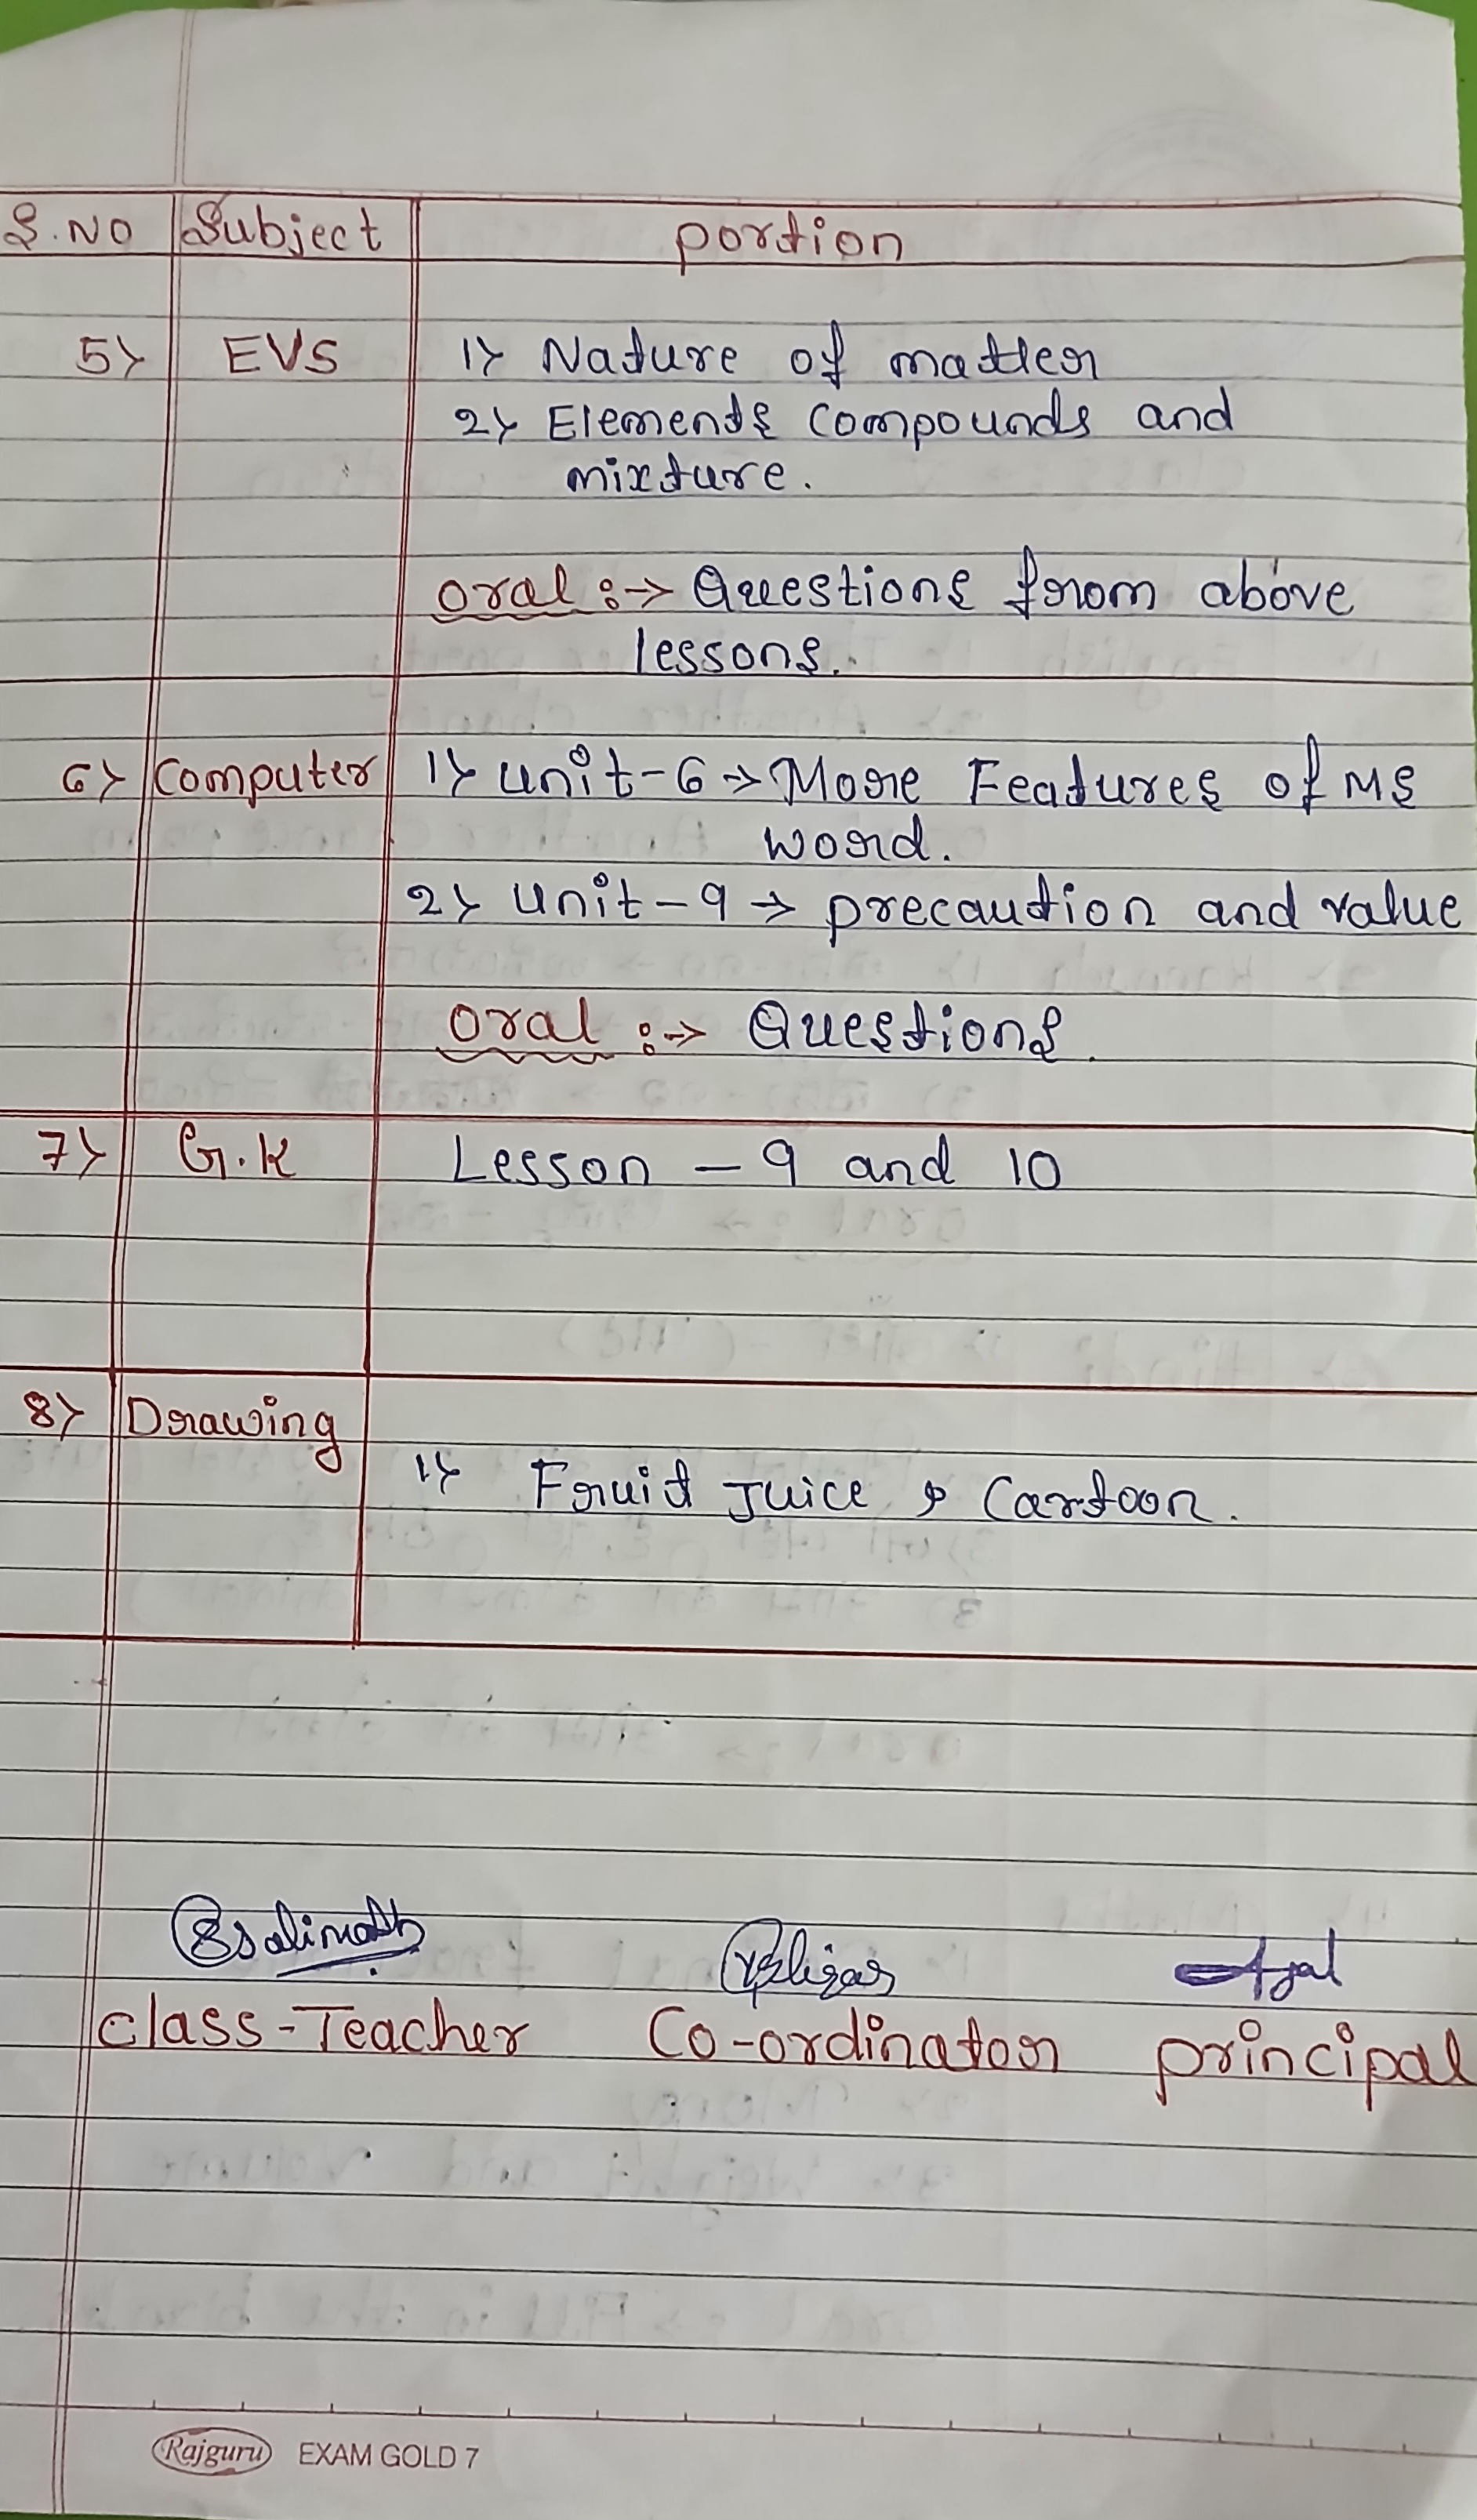 S.NO Subject portion
5> EVS 1> Nature of matter
2> Elements compounds and
mixture.
oral :-> Questions from above
lessons.
6> Computer 1> unit-6 -> More Features of MS
word.
2> unit-9 -> precaution and value
oral :-> Questions.
7> G.K Lesson - 9 and 10
8> Drawing
1> Fruit Juice & Cartoon.
Class-Teacher Co-ordinator principal
Rajguru EXAM GOLD 7